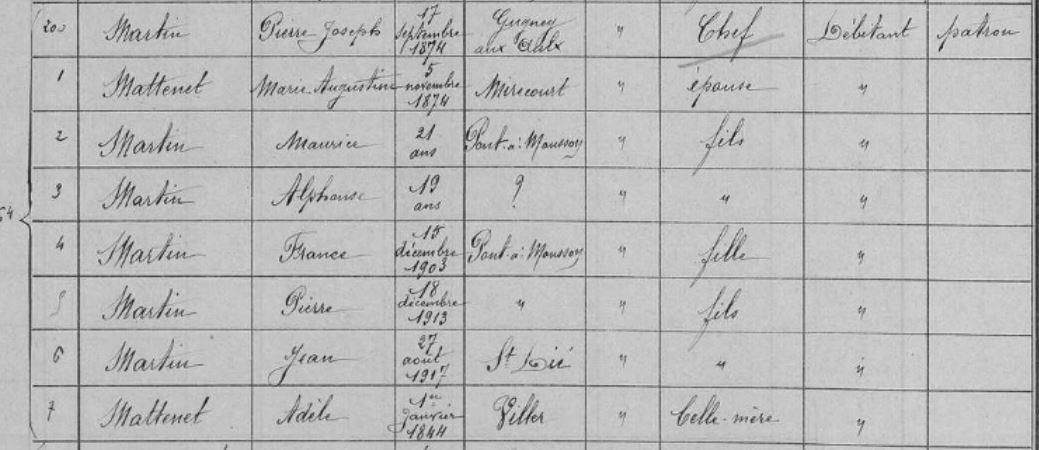 200 Martin Pierre Joseph 17 septembre 1874 Gugney aux Aulx " Chef Débitant patron
1 Mattenet Marie Augustine 5 novembre 1874 Mirecourt " épouse "
2 Martin Maurice 21 ans Pont-à-Mousson " fils "
3 Martin Alphonse 19 ans ? " " "
4 Martin France 15 décembre 1903 Pont-à-Mousson " fille "
5 Martin Pierre 18 décembre 1913 " " fils "
6 Martin Jean 27 août 1917 St Dié " " "
7 Mattenet Adèle 1er Janvier 1844 Viller " belle-mère "